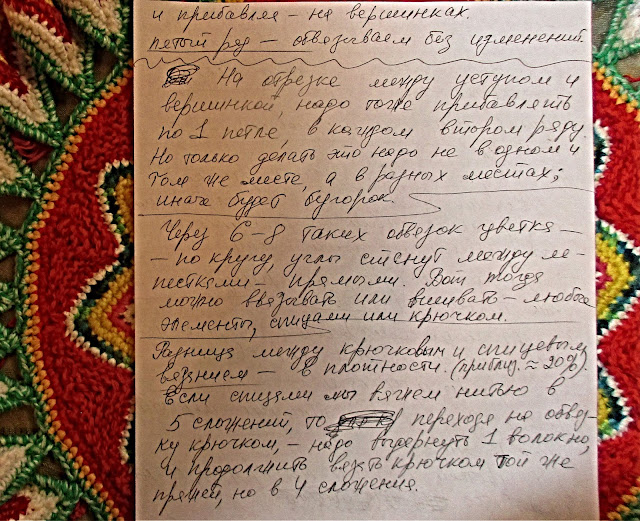 и прибавля – на вершинках.
пятый ряд – обвязываем без изменений.
На отрезке между уступом и
вершинкой, надо тоже прибавлять
по 1 петле, в каждом втором ряду.
Но только делать это надо не в одном и
том же месте, а в разных местах;
иначе будет бугорок.
Через 6–8 таких обвязок цветка –
– по кругу, углы станут между ле-
пестками – прямыми. Вот тогда
можно ввязывать или вшивать – любые
элементы, спицами или крючком.
Разница между крючковым и спицевым
вязанием – в плотности. (приблиз. ≈ 20%).
Если спицами мы вяжем нитью в
5 сложений, то переходя на обвяз-
ку крючком, – надо выдернуть 1 волокно,
и продолжить вязать крючком той же
пряжей, но в 4 сложения.